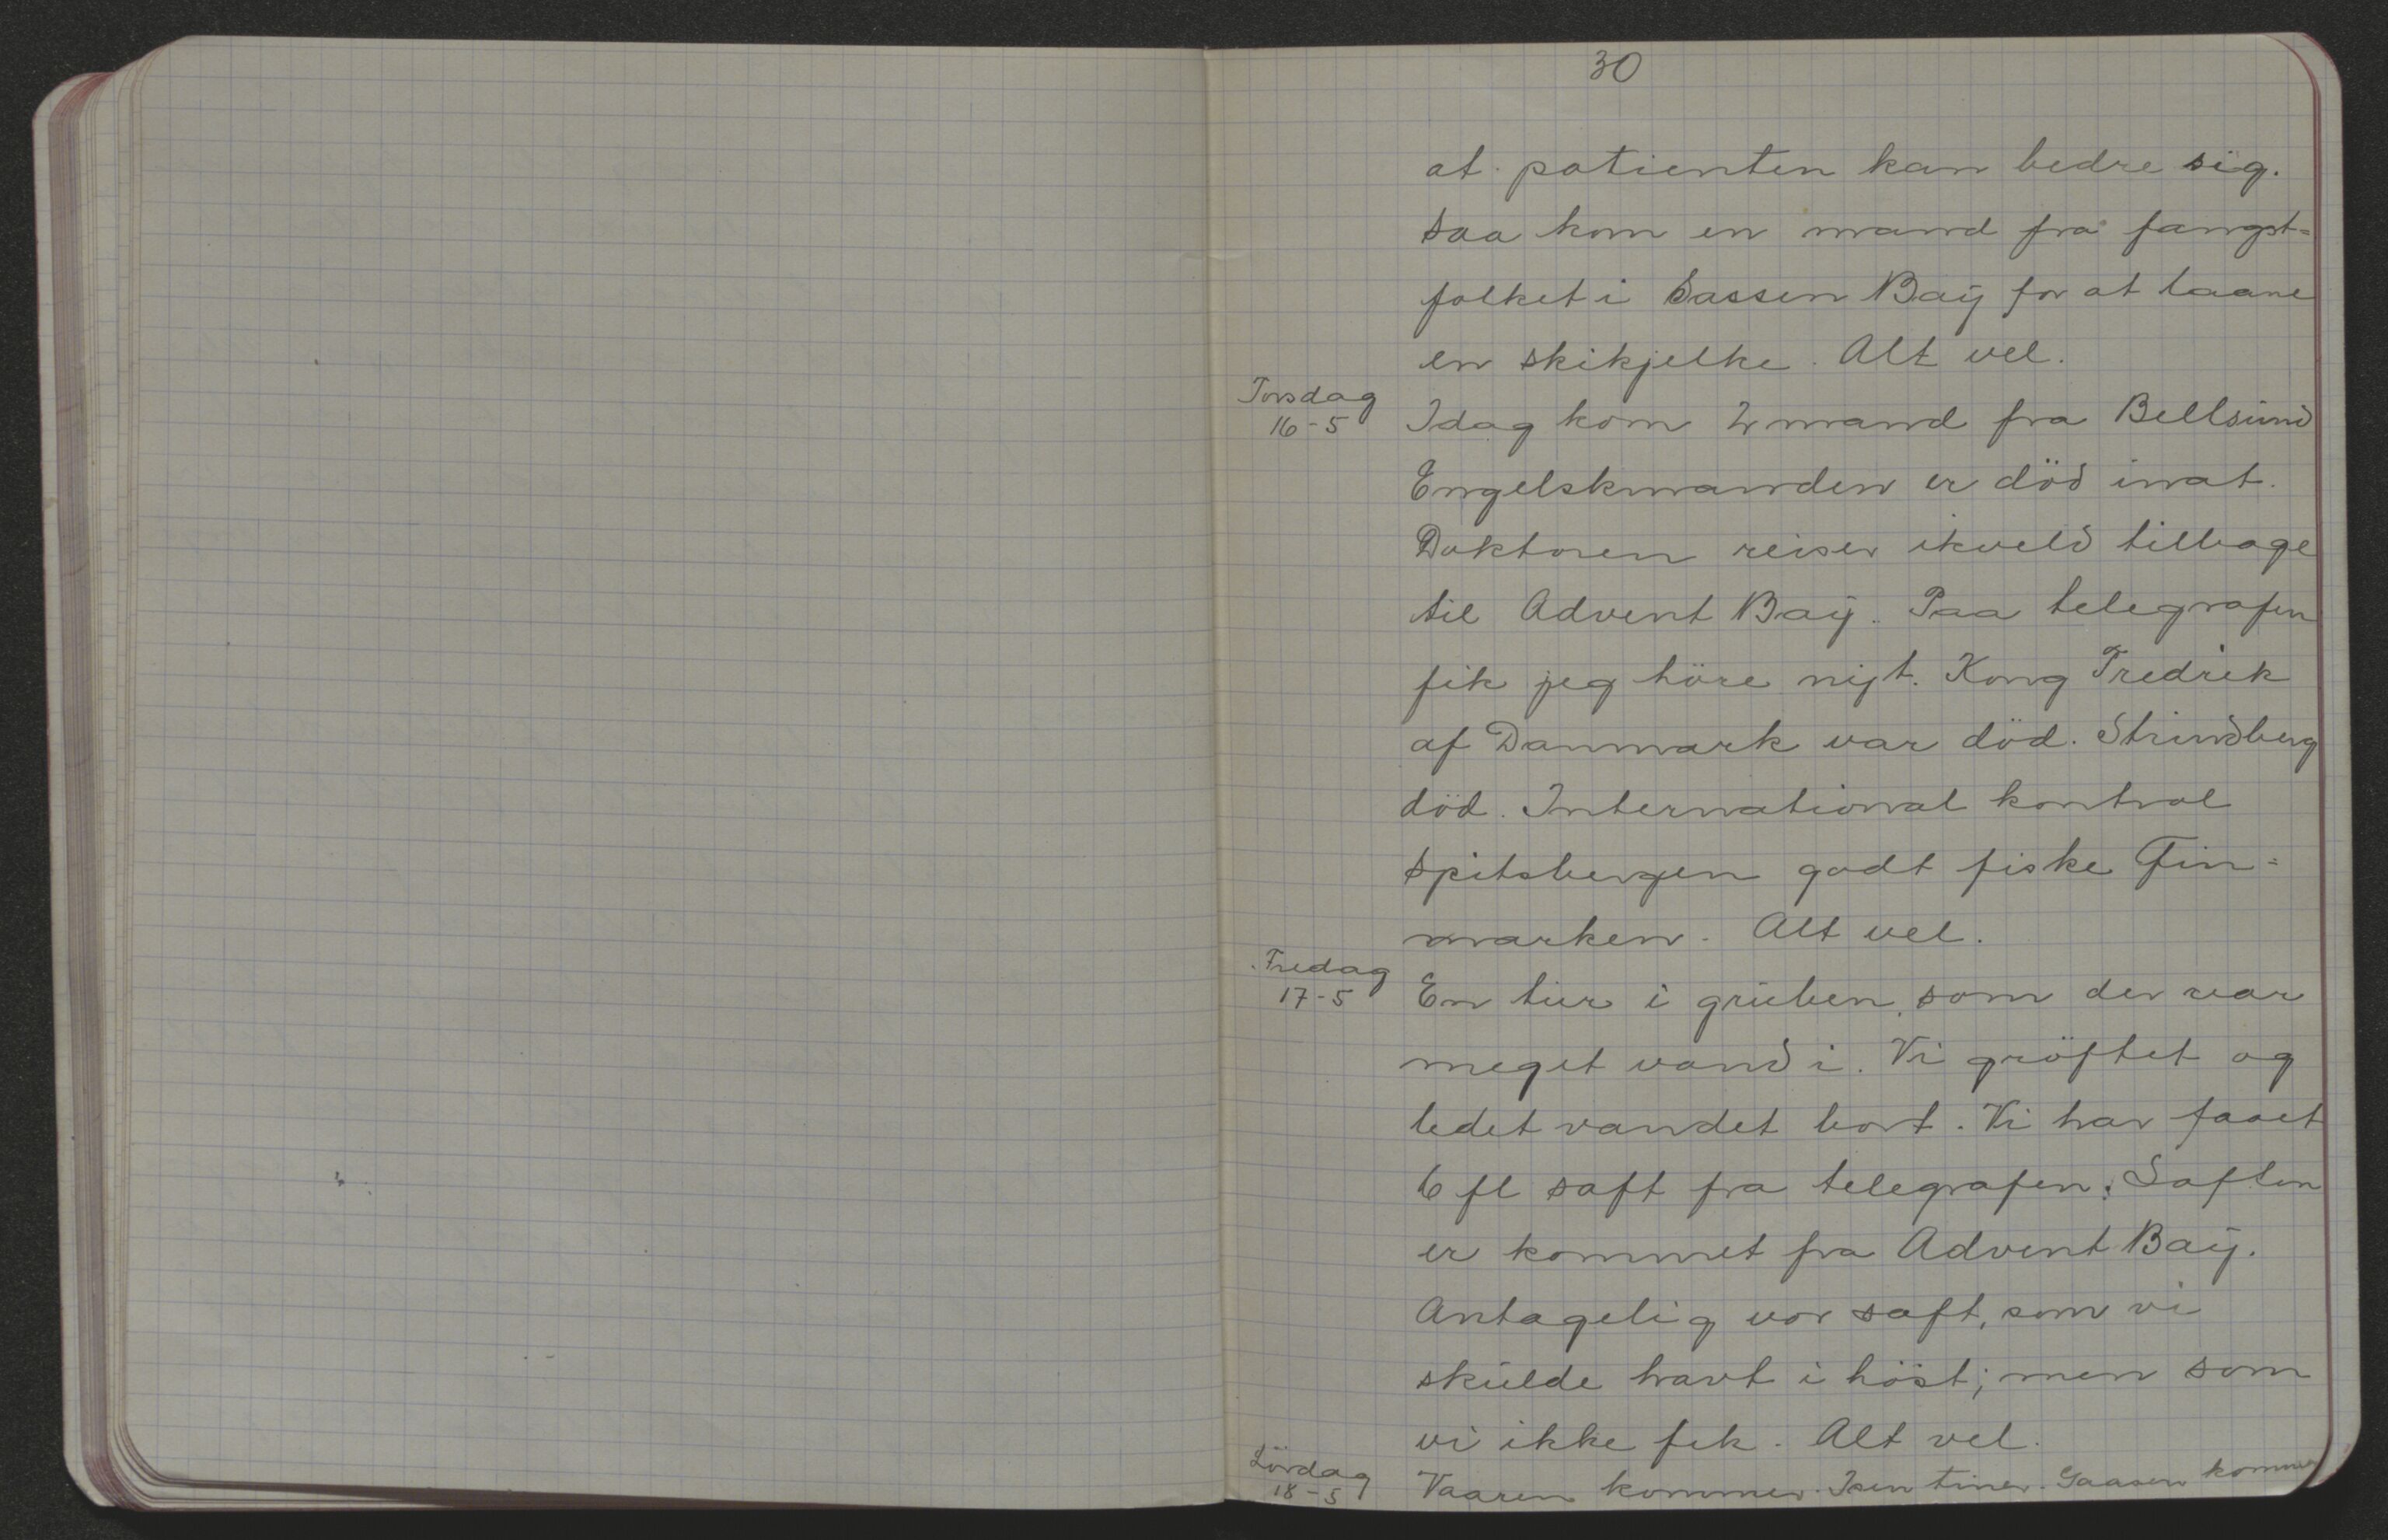 30
at patienten kan bedre sig.
Saa kom en mand fra fangst=
folket i Sassen Baÿ for at laane
en skikjelke. Alt vel.
Torsdag
16-5
Idag kom 2 mand fra Bellsund
Engelskmanden er död inat.
Doktoren reiser ikveld tilbage
til Advent Baÿ. Paa telegrafen
fik jeg höre nÿt. Kong Fredrik
af Danmark var död. Strindberg
död. International kontrol
Spitsbergen godt fiske Fin=
marken. Alt vel.
Fredag
17-5
En tur i gruben, som der var
meget vand i. Vi gröftet og
ledet vandet bort. Vi har faaet
6 fl saft fra telegrafen. Saften
er kommet fra Advent Baÿ.
Antagelig vor saft, som vi
skulde havt i höst; men som
vi ikke fik. Alt vel.
Lördag
18-5
Vaaren kommer. Isen tiner. Gaasen kommer